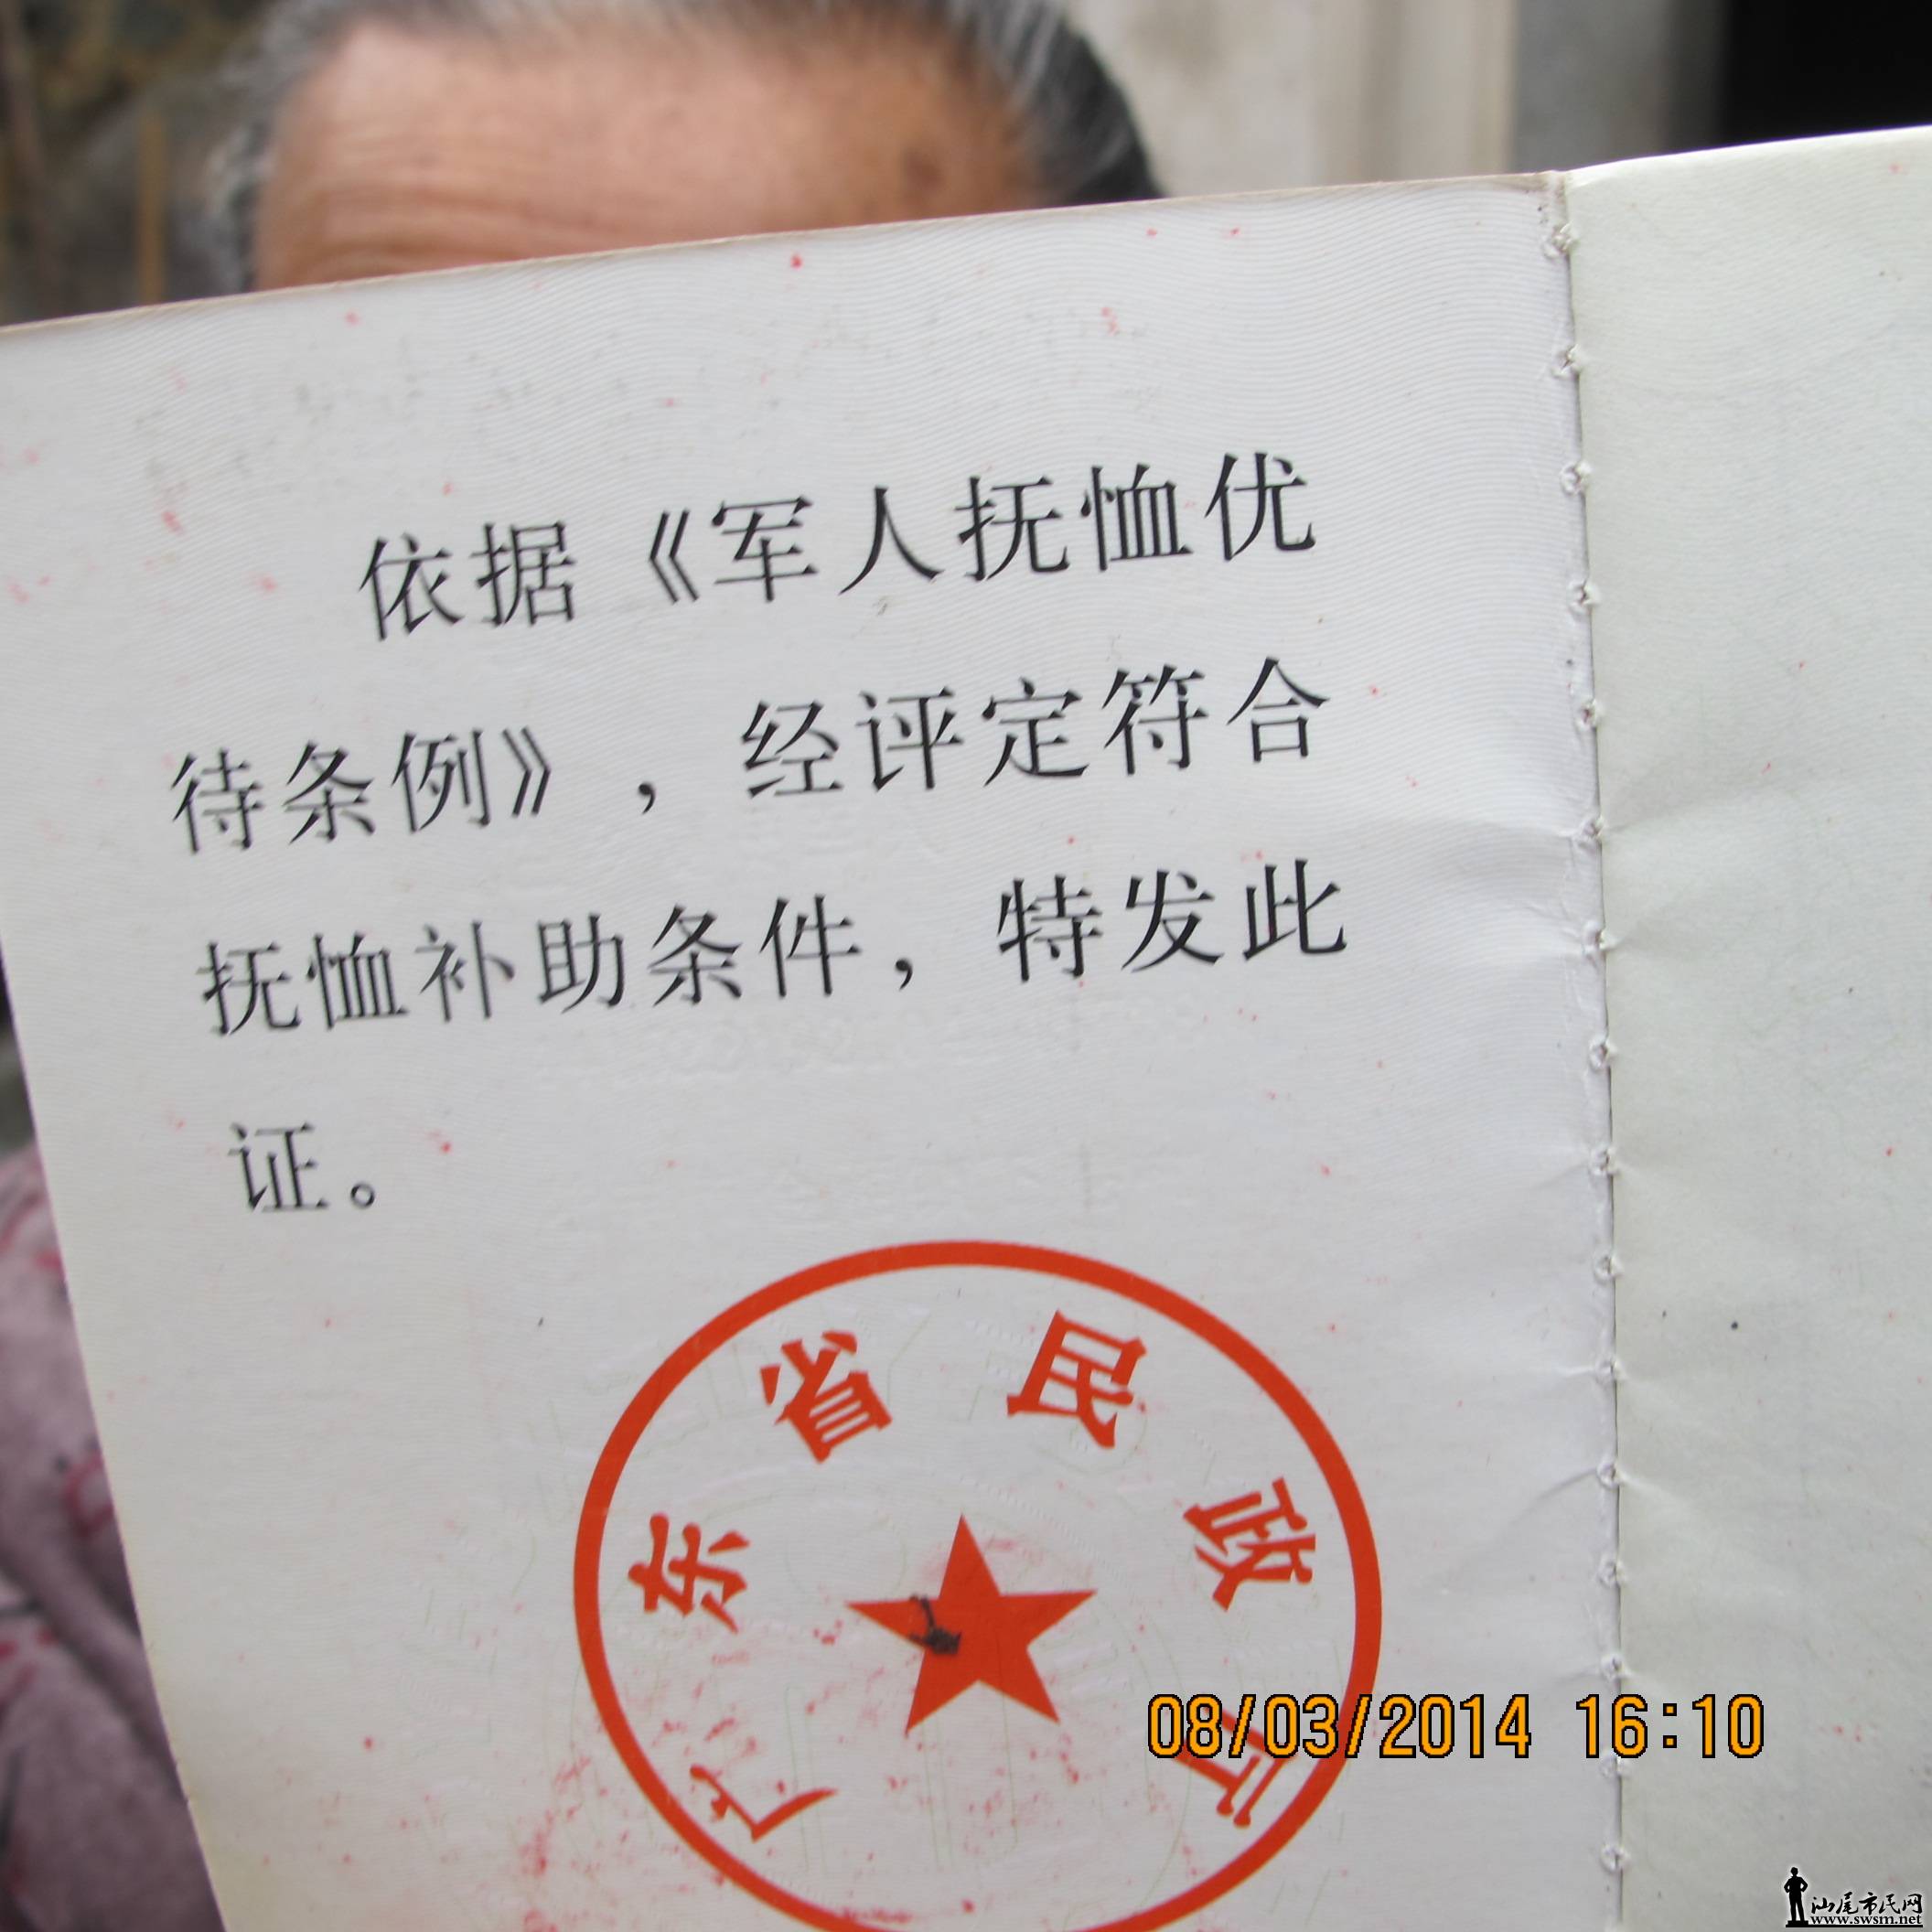 依据《军人抚恤优
待条例》，经评定符合
抚恤补助条件，特发此
证。
广东省民政厅
08/03/2014 16:10
汕尾市民网
www.swsm.net